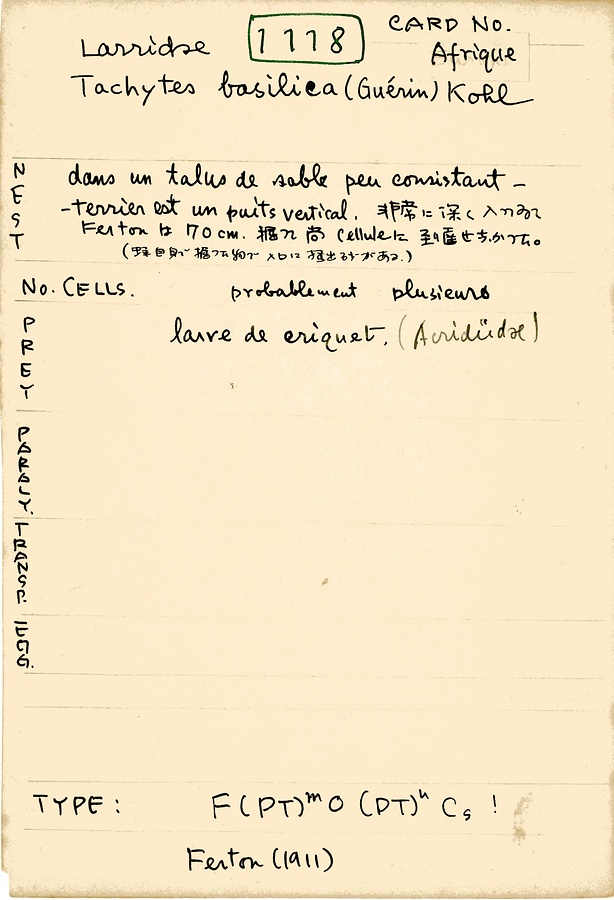 CARD No.
Larridae 1118 Afrique
Tachytes basilica (Guérin) Kohl
NEST
dans un talus de sable peu consistant -
-terrier est un puits vertical. 非常に深く入つゐて
Ferton は 70cm. 掘つて尚 Celluleに 到達せちかつた。
No. CELLS. probablement plusieurs
PREY
larve de criquet. (Acridiidae)
PARALY.
TRANSP.
EGG.
TYPE: F(PT)ᵐO (PT)ⁿ Cs !
Ferton (1911)